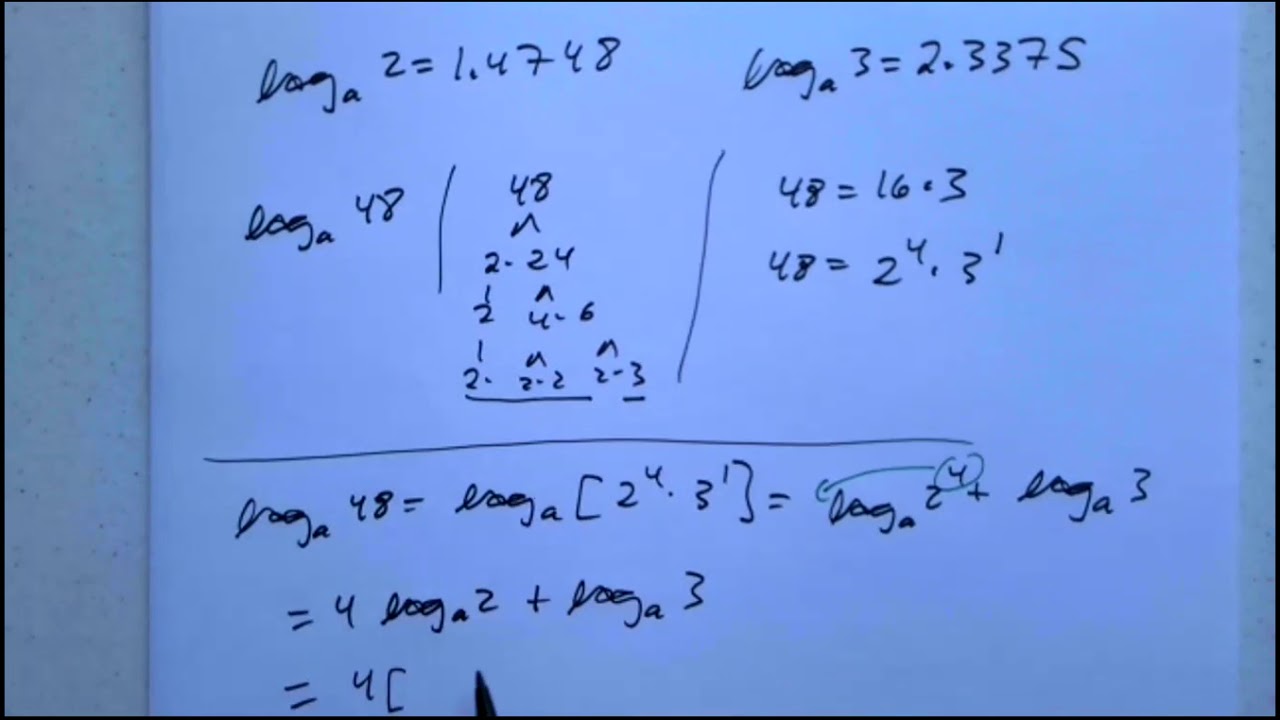 logₐ 2 = 1.4748
logₐ 3 = 2.3375
logₐ 48
48
2 · 24
2 4 · 6
2 · 2 · 2 2 · 3
48 = 16 · 3
48 = 2⁴ · 3¹
logₐ 48 = logₐ [2⁴ · 3¹] = logₐ 2⁴ + logₐ 3
= 4 logₐ 2 + logₐ 3
= 4 [